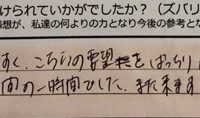 けられていかがでしたか?(ズバリ
想が、私達の何よりの力となり今後の参考とな
すく、こちらの要望をばっちり
間の一時間でした。また来ます